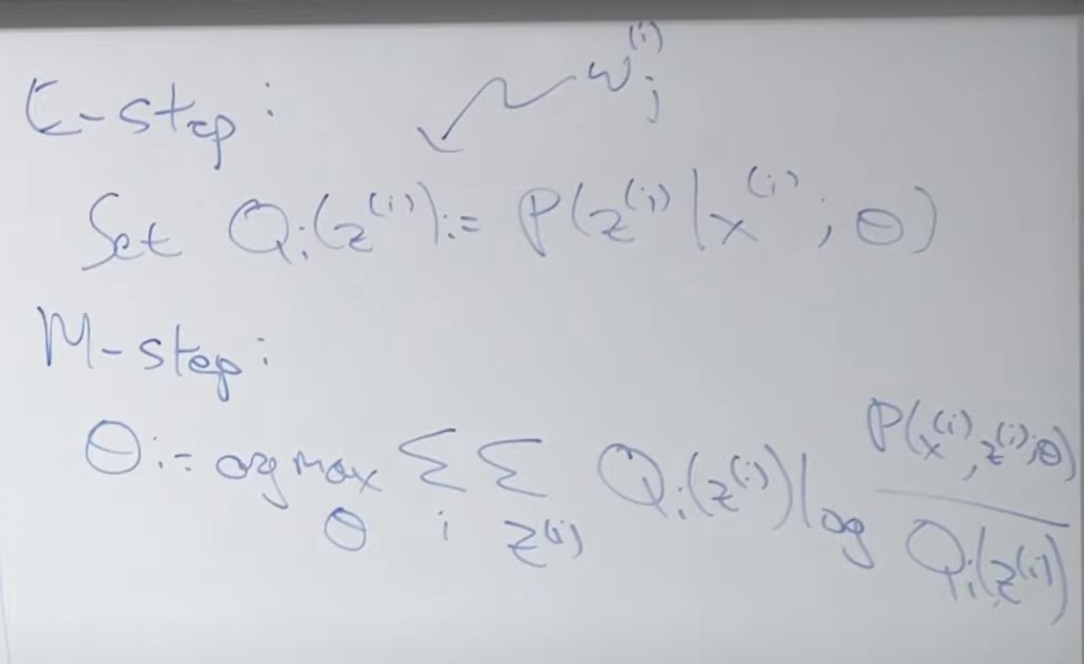 E-step:
w_j^(i)
Set Q_i(z^(i)) := P(z^(i) | x^(i) ; θ)
M-step:
θ := argmax_θ Σ_i Σ_z^(i) Q_i(z^(i)) log P(x^(i), z^(i); θ) / Q_i(z^(i))